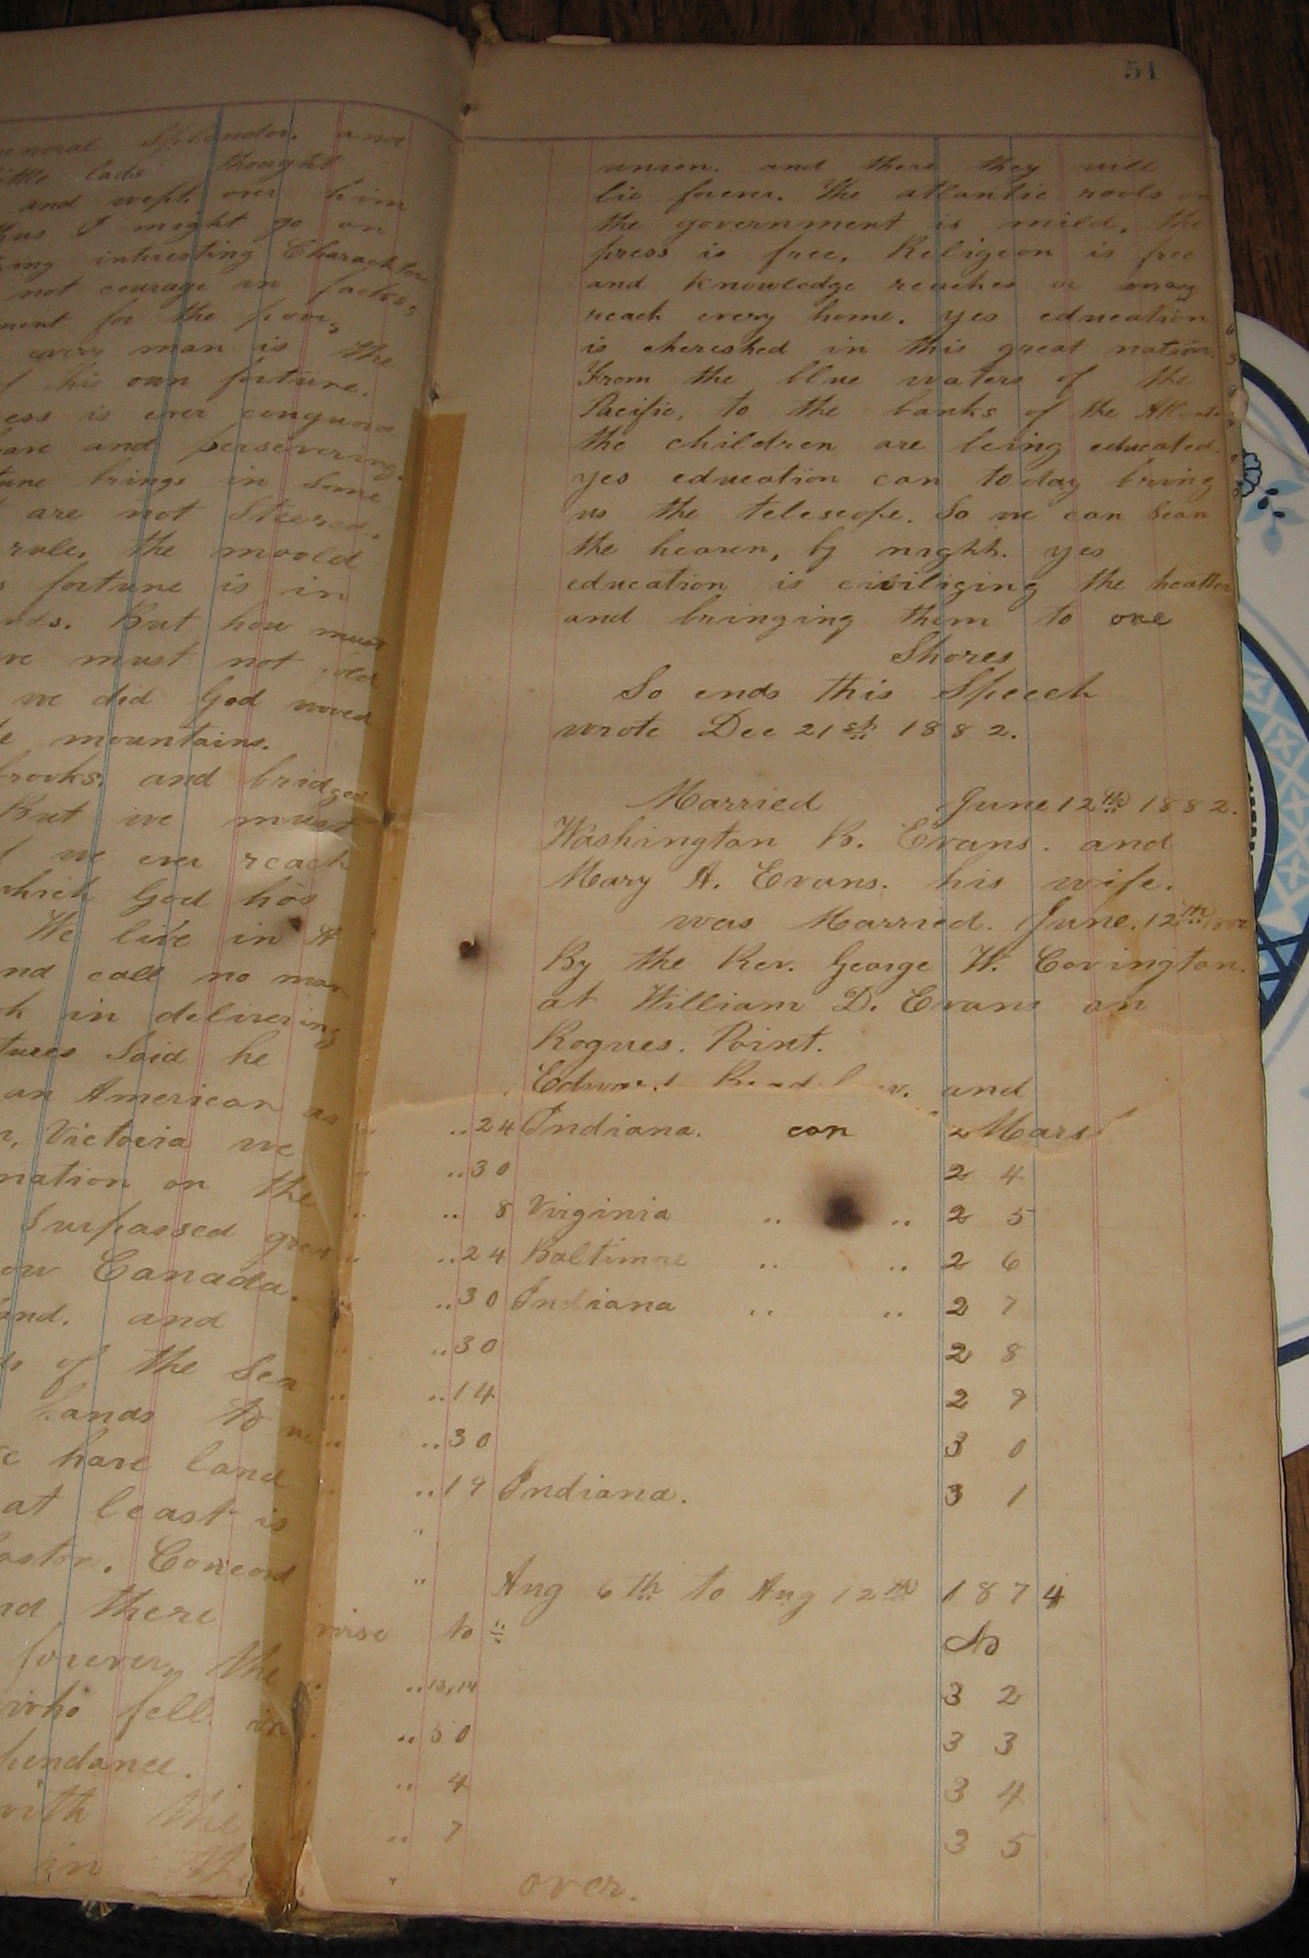 uneral Splendor. and
little lads thought
and wept over him
thus I might go on
ing interesting Charackters
not courage in facts,
ment for the poor,
every man is the
of his own fortune.
ess is ever conquered
are and persevering.
tune brings in some
are not Steered.
rule, the moold
s fortune is in
nds. But how must
we must not
we did God moved
e mountains.
brooks, and bridged
But we must
we ever reach
which God has
We live in A
nd call no man
k in delivering
tures Said he
an American as
n, Victoria we
nation on the
Surpassed
ow Canada.
and. and
ds of the Sea
hands to
e have land
at least is
oston. Concord
nd there
forever, the
who fell in
hendance.
with the
in the
51
union. and there they will
lie forever. The atlantic rools on
the government is mild, the
press is free, Religeon is free
and Knowledge reaches or may
reach every home. yes education
is chereshed in this great nation.
From the blue waters of the
Pacific, to the banks of the Atlant
the children are being educated.
yes education can today bring
us the teleseope. So we can Scan
the heaven, by night. yes
education is civiliging the heathen
and bringing them to ore
Shores
So ends this Speech
wrote Dec 21st 1882.
Married June 12th 1882.
Washington B. Evans. and
Mary A. Evans. his wife.
was Married. June. 12th
By the Rev. George W. Covington.
at William D. Evans on
Rogues. Point.
Edward and
.. 24 Indiana. can 2 Mars
.. 30 2 4
.. 8 Virginia .. .. 2 5
.. 24 Baltimore .. .. 2 6
.. 30 Indiana .. .. 2 7
.. 30 2 8
.. 14 2 9
.. 30 3 0
.. 19 Indiana. 3 1
"
" Aug 6th to Aug 12th 1874
virse No No
.. 13,14 3 2
.. 50 3 3
.. 4 3 4
.. 7 3 5
over.